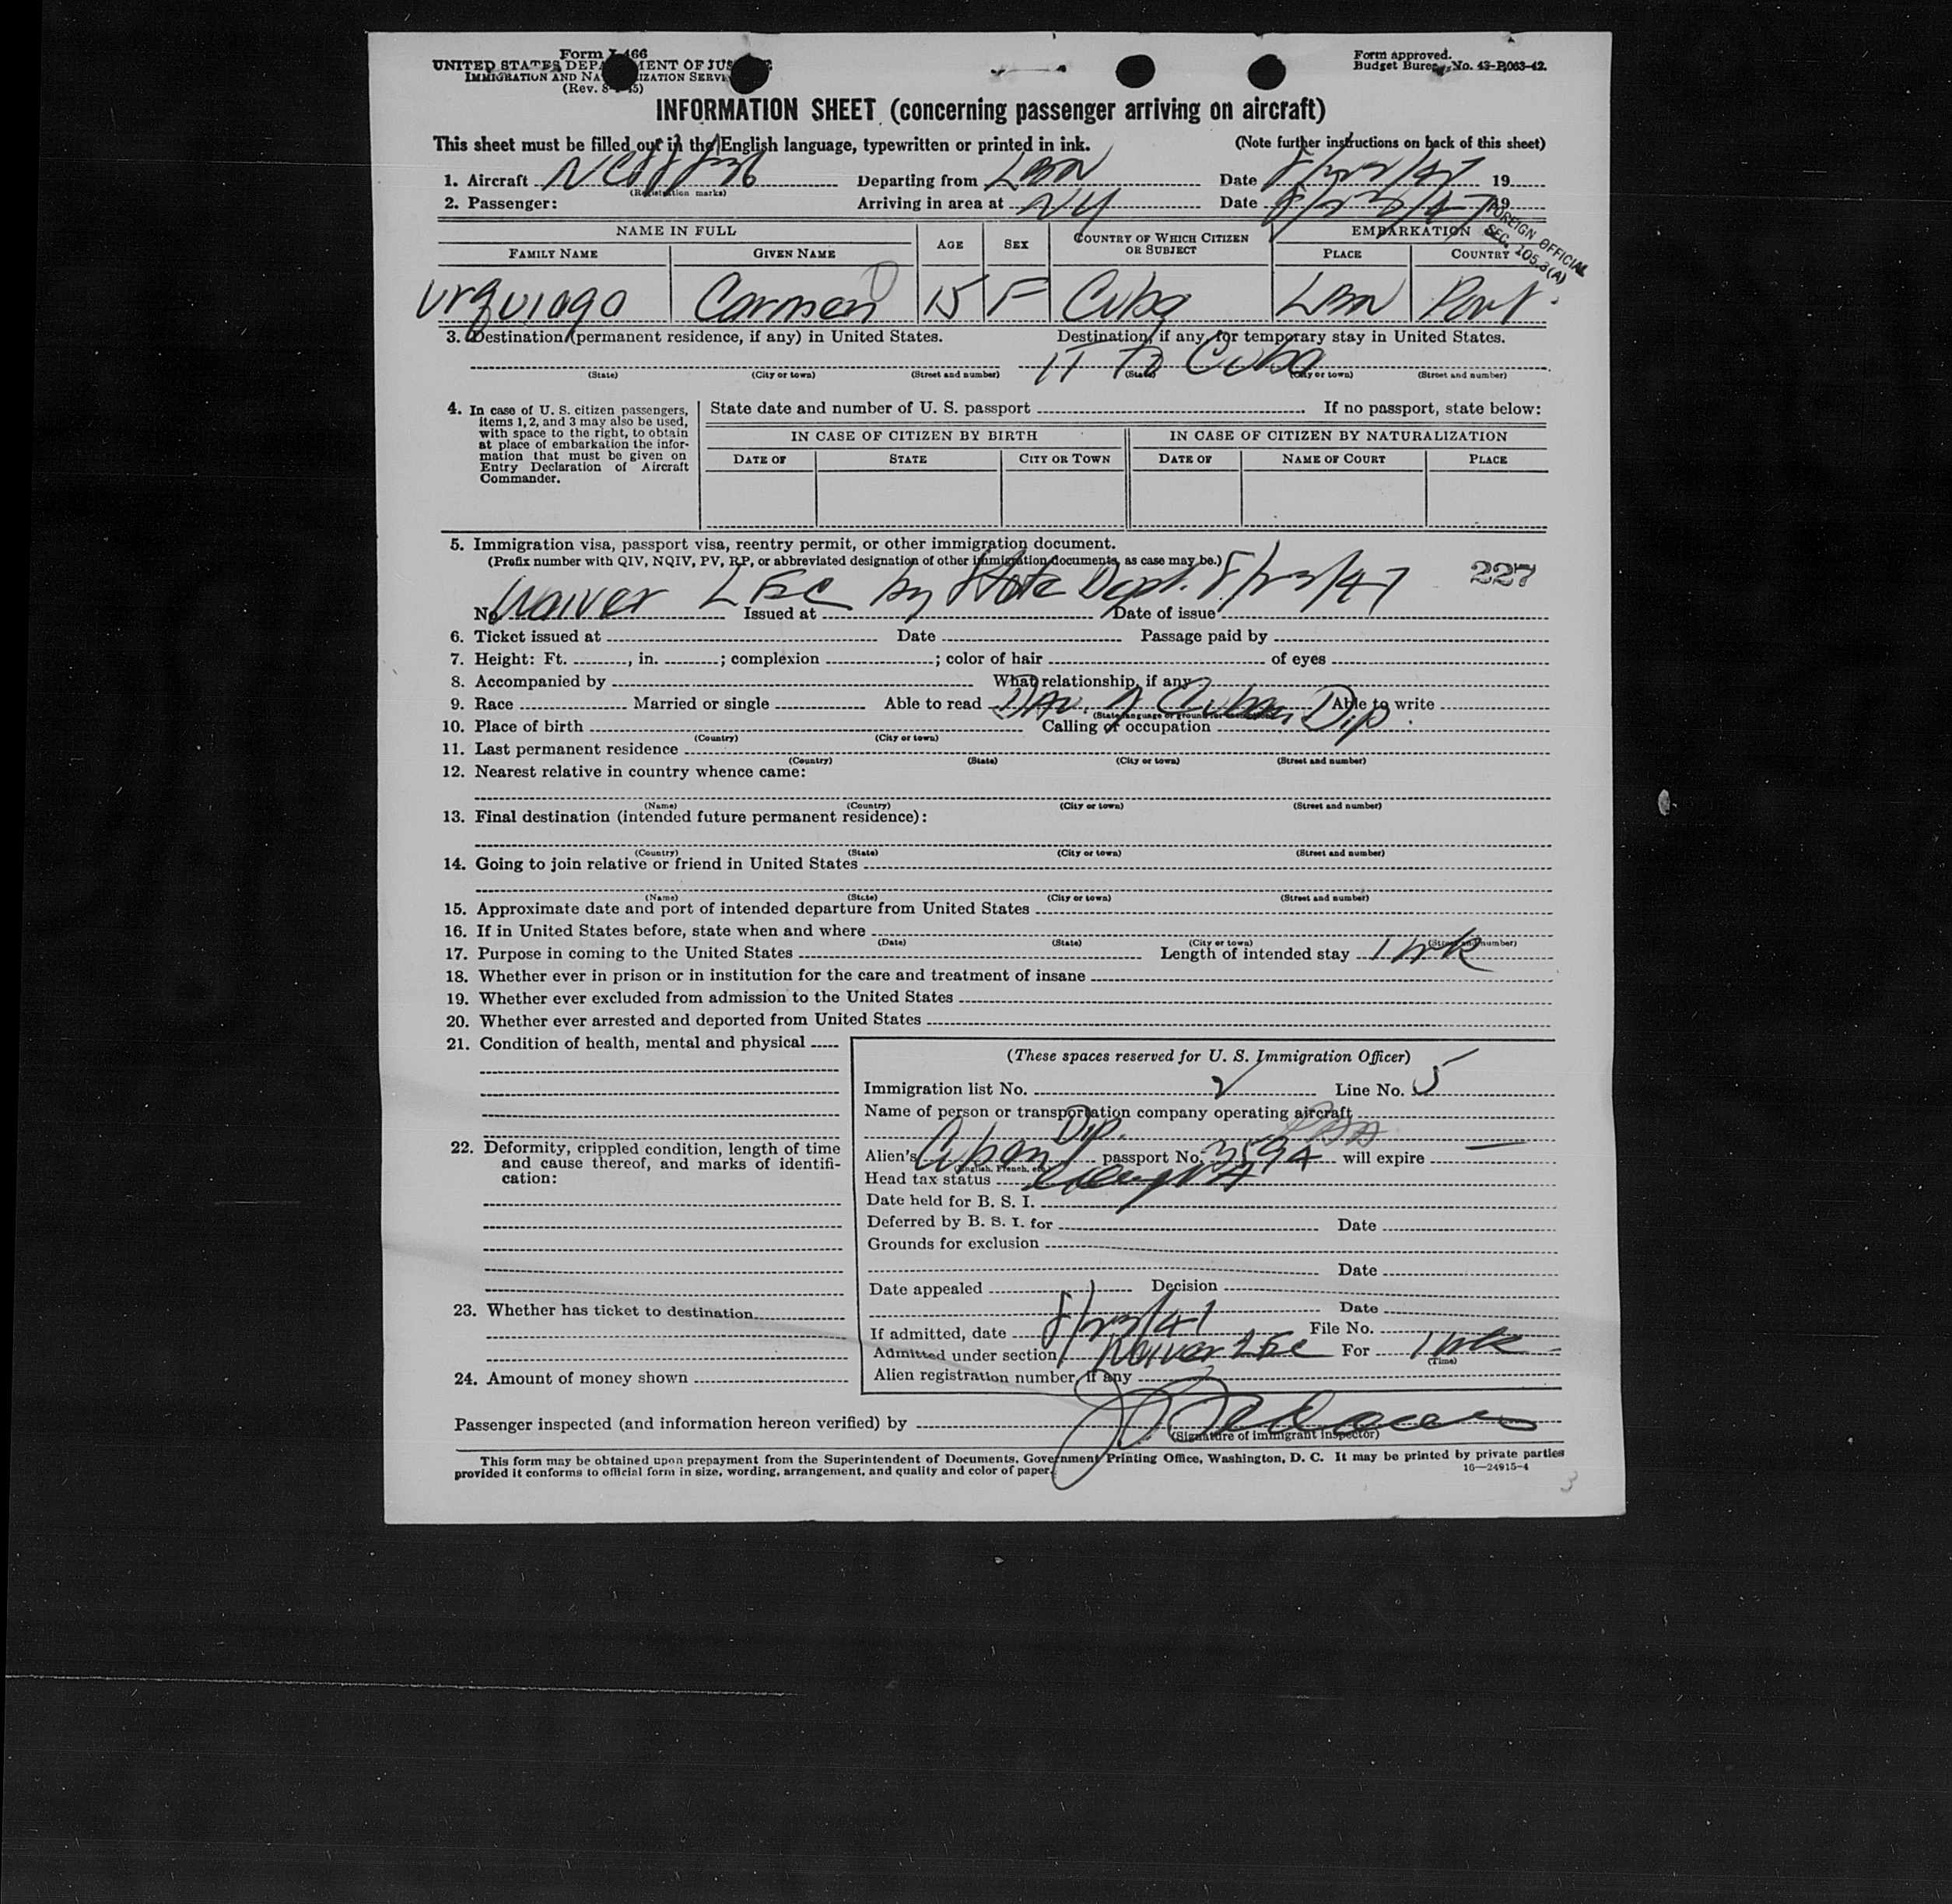 Form I-466
UNITED STATES DEPARTMENT OF JUSTICE
IMMIGRATION AND NATURALIZATION SERVICE
(Rev. 8- -45)
Form approved.
Budget Bureau No. 43-R063-42.
INFORMATION SHEET (concerning passenger arriving on aircraft)
This sheet must be filled out in the English language, typewritten or printed in ink. (Note further instructions on back of this sheet)
1. Aircraft (Registration marks) Departing from LBN Date 8/22/47 19
2. Passenger: Arriving in area at NY Date 8/23/47 19
FOREIGN OFFICIAL
SEC. 105.3(A)
NAME IN FULL AGE SEX COUNTRY OF WHICH CITIZEN OR SUBJECT EMBARKATION
FAMILY NAME GIVEN NAME PLACE COUNTRY
Urquiaga Carmen 15 F Cuba LBN Port.
3. Destination (permanent residence, if any) in United States. Destination, if any, for temporary stay in United States.
IT To Cuba
(State) (City or town) (Street and number) (State) (City or town) (Street and number)
4. In case of U. S. citizen passengers, items 1, 2, and 3 may also be used, with space to the right, to obtain at place of embarkation the information that must be given on Entry Declaration of Aircraft Commander.
State date and number of U. S. passport If no passport, state below:
IN CASE OF CITIZEN BY BIRTH IN CASE OF CITIZEN BY NATURALIZATION
DATE OF STATE CITY OR TOWN DATE OF NAME OF COURT PLACE
5. Immigration visa, passport visa, reentry permit, or other immigration document.
(Prefix number with QIV, NQIV, PV, RP, or abbreviated designation of other immigration documents, as case may be.)
227
No. Waiver Issued at by State Dept. Date of issue 8/23/47
6. Ticket issued at Date Passage paid by
7. Height: Ft. , in. ; complexion ; color of hair of eyes
8. Accompanied by What relationship, if any
9. Race Married or single Able to read Dau. of Cuban Dip. Able to write
(State language or ground for exemption)
10. Place of birth Calling or occupation
(Country) (City or town)
11. Last permanent residence
(Country) (State) (City or town) (Street and number)
12. Nearest relative in country whence came:
(Name) (Country) (City or town) (Street and number)
13. Final destination (intended future permanent residence):
(Country) (State) (City or town) (Street and number)
14. Going to join relative or friend in United States
(Name) (State) (City or town) (Street and number)
15. Approximate date and port of intended departure from United States
16. If in United States before, state when and where
(Date) (State) (City or town) (Street and number)
17. Purpose in coming to the United States Length of intended stay 1 wk
18. Whether ever in prison or in institution for the care and treatment of insane
19. Whether ever excluded from admission to the United States
20. Whether ever arrested and deported from United States
21. Condition of health, mental and physical
22. Deformity, crippled condition, length of time and cause thereof, and marks of identification:
23. Whether has ticket to destination
24. Amount of money shown
(These spaces reserved for U. S. Immigration Officer)
Immigration list No. 2 Line No. 5
Name of person or transportation company operating aircraft
PAA
Alien's Cuban Dip. passport No. 3594 will expire —
(English, French, etc.)
Head tax status
Date held for B. S. I.
Deferred by B. S. I. for Date
Grounds for exclusion
Date
Date appealed Decision
Date
If admitted, date 8/23/47 File No.
Admitted under section Waiver For 1 wk
(Time)
Alien registration number, if any
Passenger inspected (and information hereon verified) by
(Signature of immigrant inspector)
This form may be obtained upon prepayment from the Superintendent of Documents, Government Printing Office, Washington, D. C. It may be printed by private parties
provided it conforms to official form in size, wording, arrangement, and quality and color of paper. 16—24915-4
3